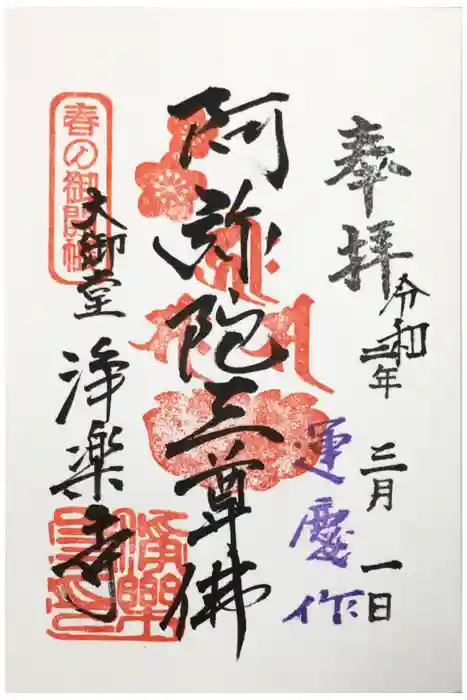 奉拝
令和三年 三月 一日
運慶作
阿弥陀三尊佛
春の御開帳
大御堂
浄楽寺